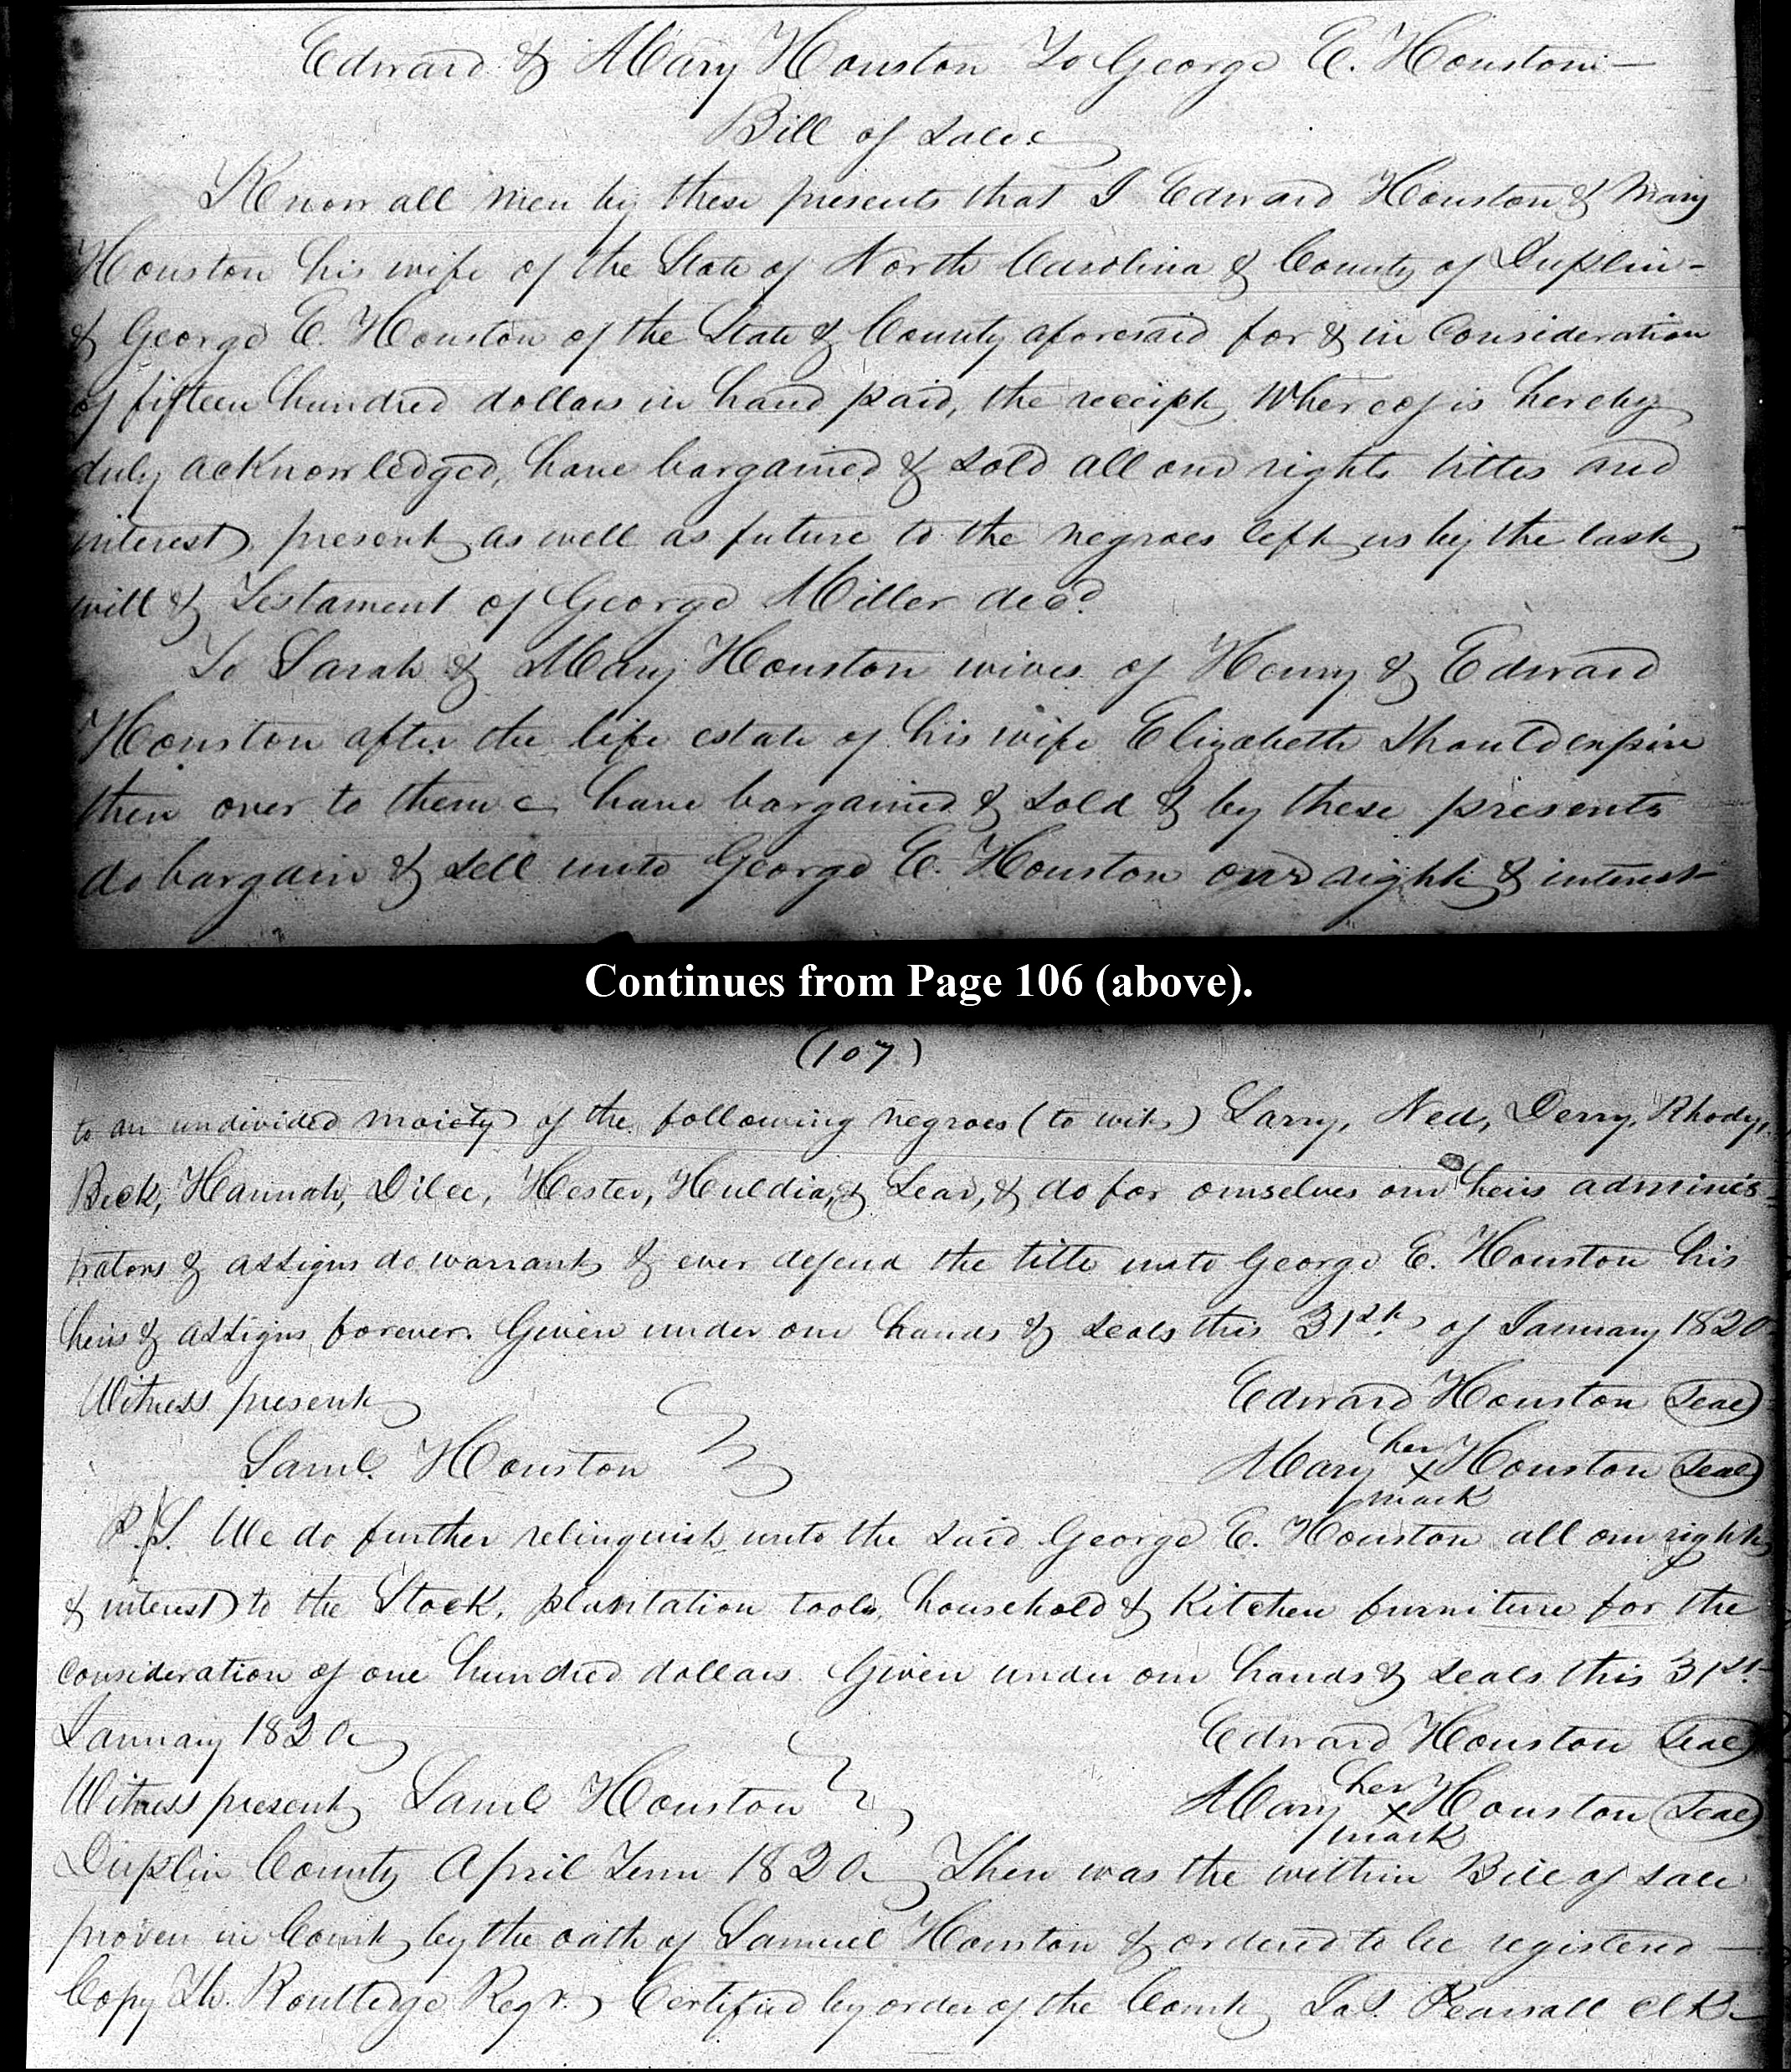 Edward & Mary Houston To George E. Houston —
Bill of Sale
Know all men by these presents that I Edward Houston & Mary
Houston his wife of the State of North Carolina & County of Duplin -
& George E. Houston of the State & County aforesaid for & in Consideration
of fifteen hundred dollars in hand paid, the receipt Whereof is hereby
duly acknowledged, have bargained & sold all our rights titles and
interest present as well as future to the negroes left us by the last
will & Testament of George Miller decd.
To Sarah & Mary Houston wives of Henry & Edward
Houston after the life estate of his wife Elizabeth Should expire
then over to them have bargained & sold & by these presents
do bargain & sell unto George E. Houston our right & interest
Continues from Page 106 (above).
(107)
to an undivided moiety of the following negroes (to wit) Larry, Ned, Derry, Rhody,
Beck, Hannah, Dilce, Hester, Huldia, & Lear, & do for ourselves our heirs adminis-
trators & assigns do warrant & ever defend the title unto George E. Houston his
heirs & assigns forever. Given under our hands & seals this 31st. of January 1820
Witness present Edward Houston (Seal)
her
Saml. Houston Mary x Houston (Seal)
mark
P.S. We do further relinquish unto the said George E. Houston all our right
& interest to the Stock, plantation tools, household & Kitchen furniture for the
Consideration of one hundred dollars Given under our hands & seals this 31st.
January 1820 Edward Houston (Seal)
her
Witness present Saml Houston Mary x Houston (Seal)
mark
Duplin County April Term 1820 Then was the within Bill of sale
proven in Court by the oath of Samuel Houston & ordered to be registered —
Copy Th. Routledge Regr. Certified by order of the Court Jas. Pearsall Clk